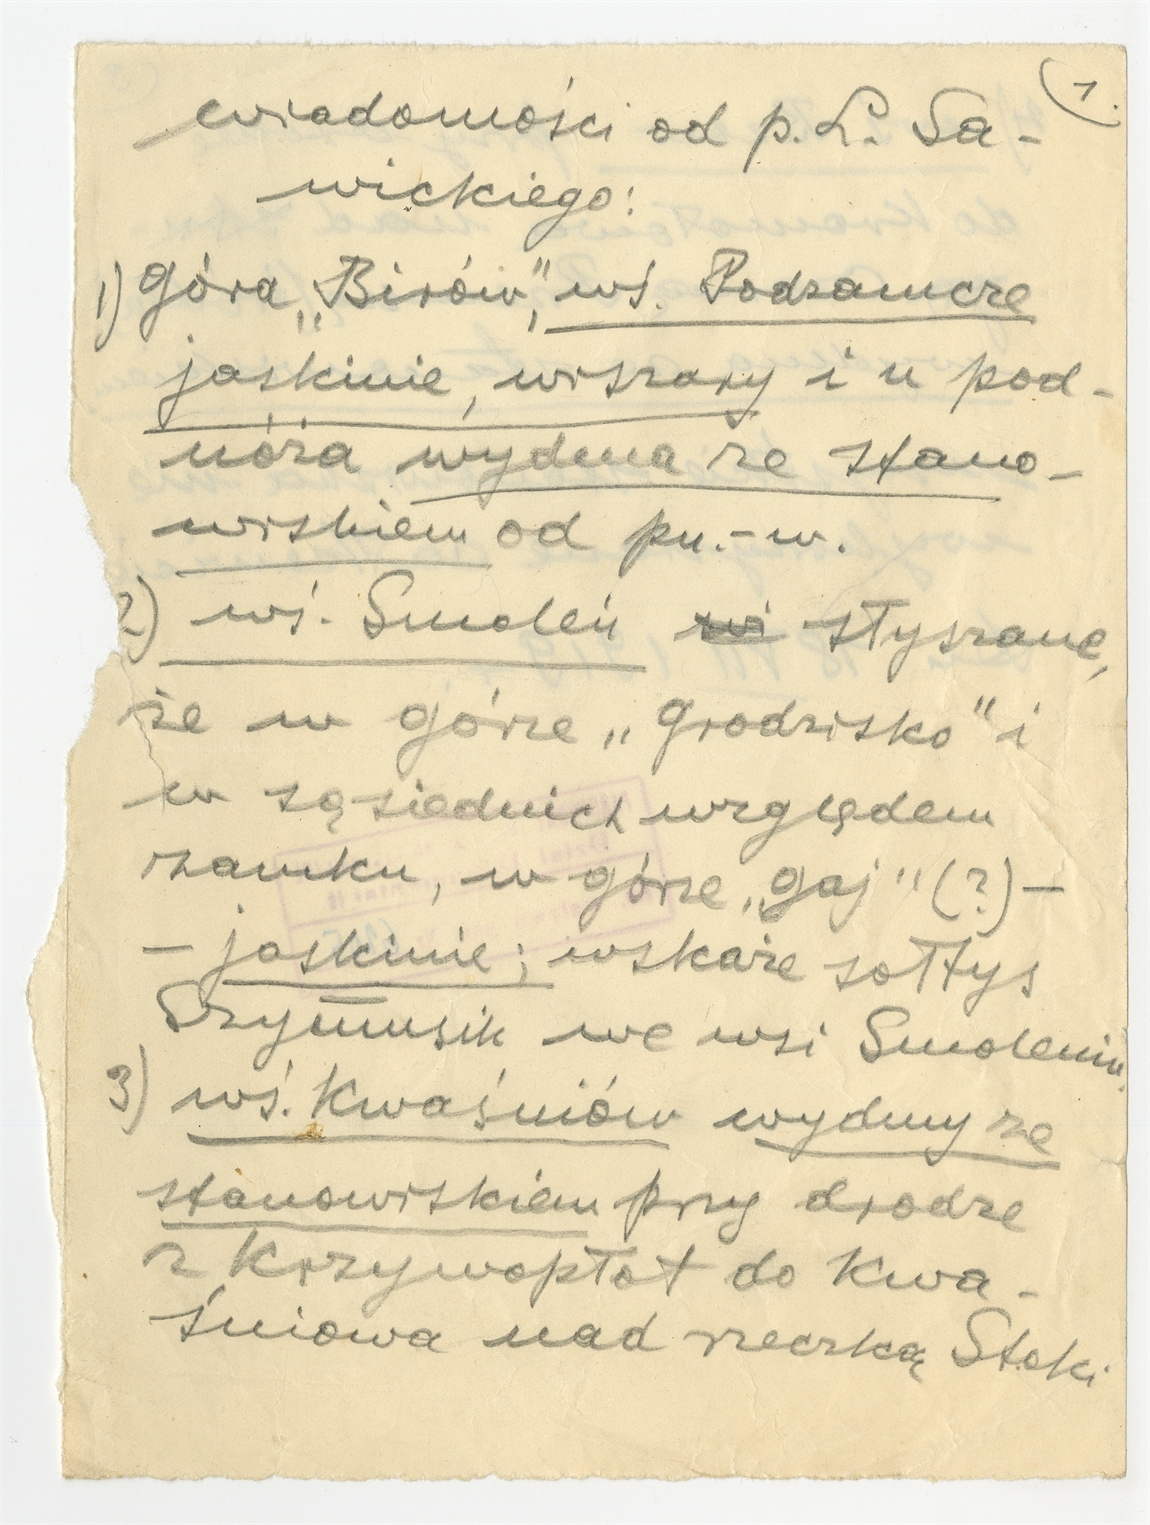 1.
wiadomości od p. L. Sa-
wickiego:
1) góra „Birów”, wś. Podzamcze
jaskinie, wiszary i u pod-
nóża wydma ze stano-
wiskiem od pn.-w.
2) wś. Smoleń słyszane,
że w górze „grodzisko" i
w sąsiednich względem
zamku, w górze „gaj" (?) -
- jaskinie; wskaże sołtys
Szymusik we wsi Smoleniu.
3) wś. Kwaśniów wydmy ze
stanowiskiem przy drodze
z Krzywopłot do Kwa-
śniowa nad rzeczką Stoki